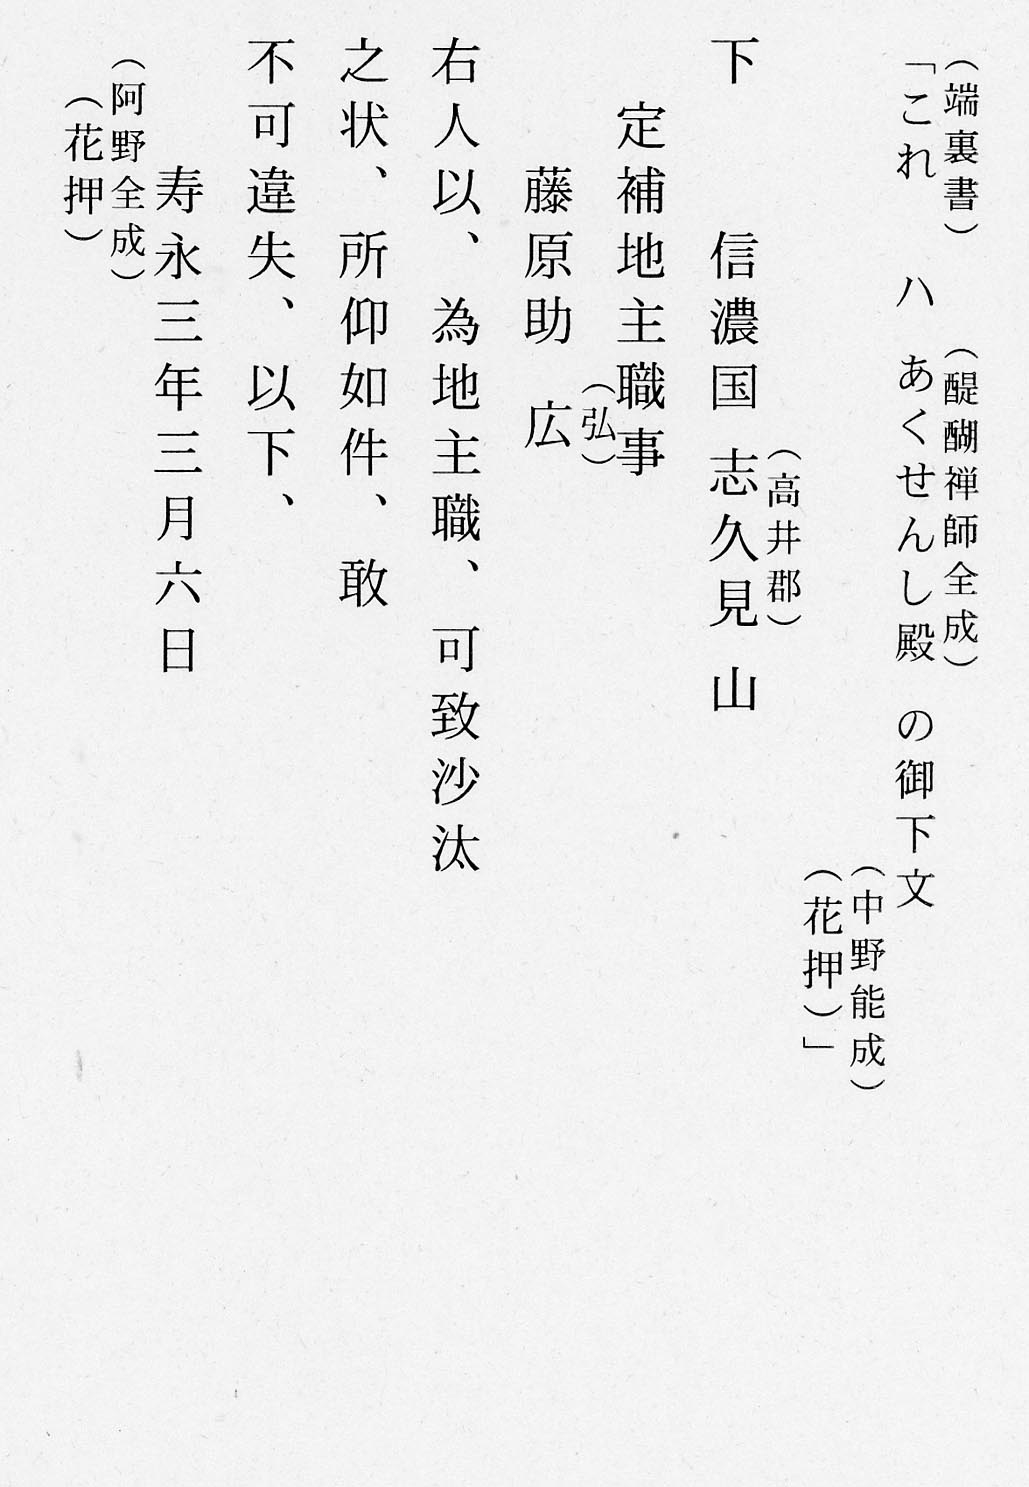 （端裏書）　（醍醐禅師全成）
「これ　ハ　あくせんし殿　の御下文
（中野能成）
（花押）」
（高井郡）
下　信濃国　志久見　山
定補地主職事
（弘）
藤原助　広
右人以、為地主職、可致沙汰
之状、所仰如件、敢
不可違失、以下、
寿永三年三月六日
（阿野全成）
（花押）